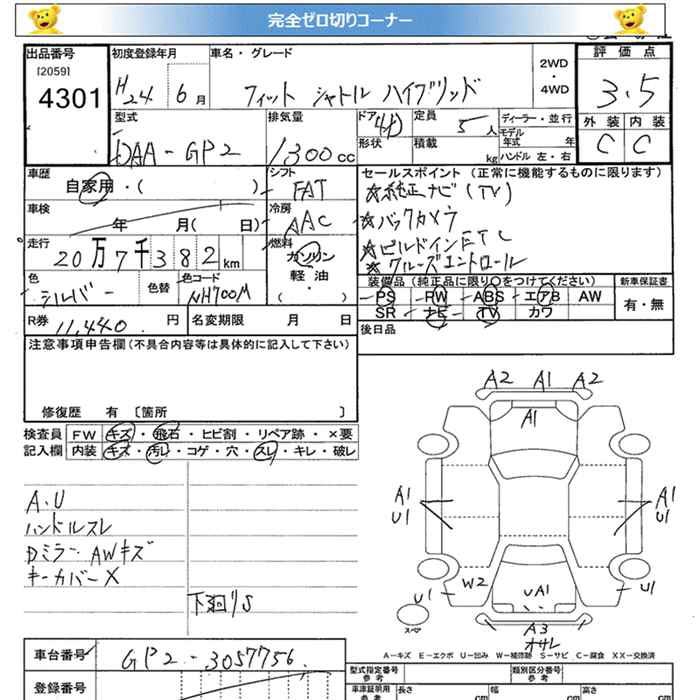 完全ゼロ切りコーナー
出品番号
[2059]
4301
初度登録年月
H24 6月
車名・グレード
フィット シャトル ハイブリッド
2WD
・
4WD
評価点
3.5
外装 内装
C C
型式
DAA-GP2
排気量
1300cc
ドア
形状
定員
5人
積載
kg
ディーラー・並行
モデル年式 年
ハンドル 左・右
車歴
自家用・( )
シフト
FAT
車検
年 月( 日)
冷房
AAC
走行
20万7千382km
燃料
ガソリン
軽・油
・( )
色
シルバー
色替
色コード
NH700M
R券
11,440円
名変期限 月 日
セールスポイント(正常に機能するものに限ります)
☆純正ナビ(TV)
☆バックカメラ
☆ビルドインETC
☆クルーズコントロール
装備品(純正品に限り○をつけてください)
PS PW ABS エアB AW
SR ナビ TV カワ
新車保証書
有・無
後日品
注意事項申告欄(不具合内容等は具体的に記入して下さい)
修復歴 有 〔箇所 〕
検査員 FW キズ・飛石・ヒビ割・リペア跡・×要
記入欄 内装 キズ・汚レ・コゲ・穴・スレ・キレ・破レ
A.U
ハンドルスレ
Dミラー AWキズ
キーカバーX
下廻りS
A2 A1 A2
A1
A1
U1
A1
U1
U1
W2
UA1
U1
スペア
A3
オサレ
A-キズ E-エクボ U-凹み W-補修跡 S-サビ C-腐食 XX-交換済
車台番号
GP2-3057756
登録番号
型式指定番号
参考
類別区分番号
参考
車検証明用
参考
長さ
cm
幅
cm
高さ
cm